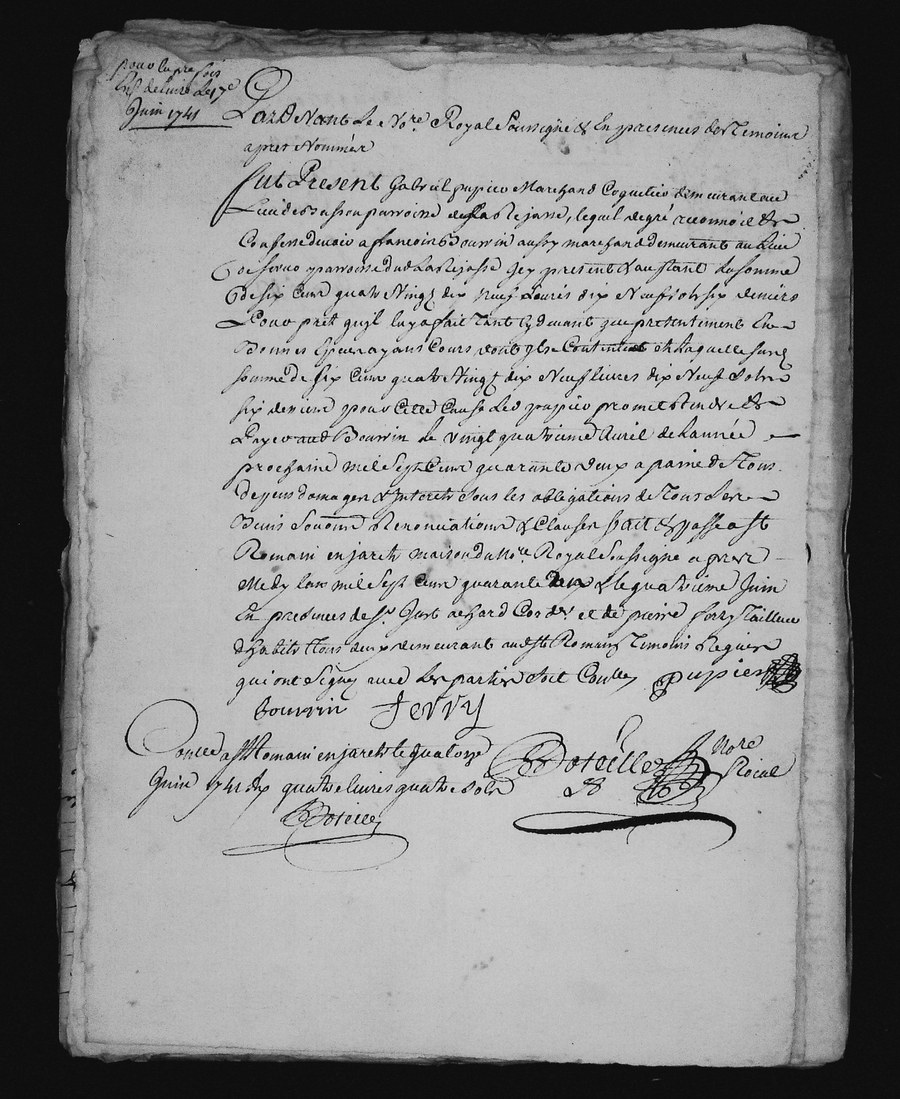 pour la premiere fois
Juin 1741
Pardevant Le Nore. Royal Soussigné & En presences des Temoins
apres Nommés
fut Present Gabriel pupier Marchand Coquetier demeurant au
Lieu de parroisse de La Rejasse, lequel de gré reconnoit &
Confesse devoir a francois Bourrin aussy marchand demeurant au Lieu
de parroisse dud. La Rejasse Icy present & acceptant La somme
de six cens quatre Vingt dix neuf Livres dix Neuf sols six deniers
Pour pret qu'il luy a fait Tant Cy devant que presentement En
Bonnes Especes ayans Cours dont Content Et Laquelle susd.
somme de six Cens quatre Vingt dix Neuf livres dix Neuf sols
six deniers pour Cette Cause Led. pupier promet Rendre &
Payer aud. Bourrin Le vingt quatrieme Avril de L'année
prochaine mil Sept Cens quarante deux a paine de Tous
depens domages & Interets Sous les obligations de Tous Ses
Biens Renonciations & Clauses fait & passé a St.
Romain en jarets maison du Nore. Royal Soussigné apres
Midy L'an mil Sept Cens quarante & le quatrieme Juin
En presences de Sr. Just Cordr. et de pierre ferry Tailleur
d'habits Tous deux demeurant aud. St. Romain Temoins Requis
qui ont Signé avec Les parties dhoit Controllé pupier
Bourrin Ferry
Controllé a St. Romain en jarets le quatorze
Juin 1741 quatre livres quatre sols
Nore
Roial